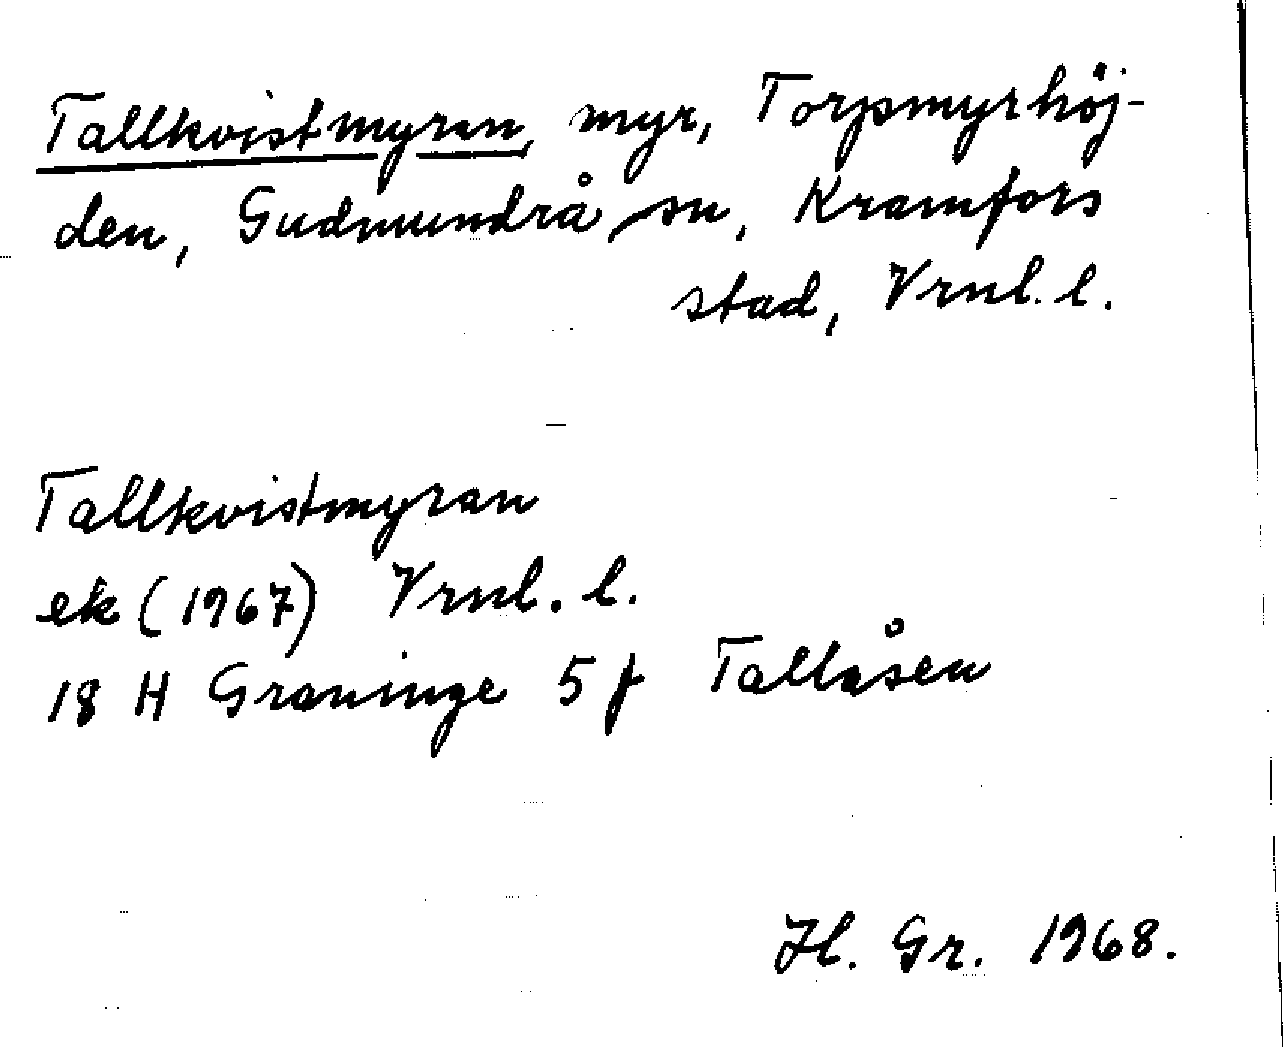 Tallkvistmyran, myr, Torpsmyrhöj-
den, Gudmundrå sn, Kramfors
stad, Vrnl. l.
Tallkvistmyran
ek (1967) Vrnl. l.
18 H Graninge 5 f Tallåsen
Hl. Gr. 1968.